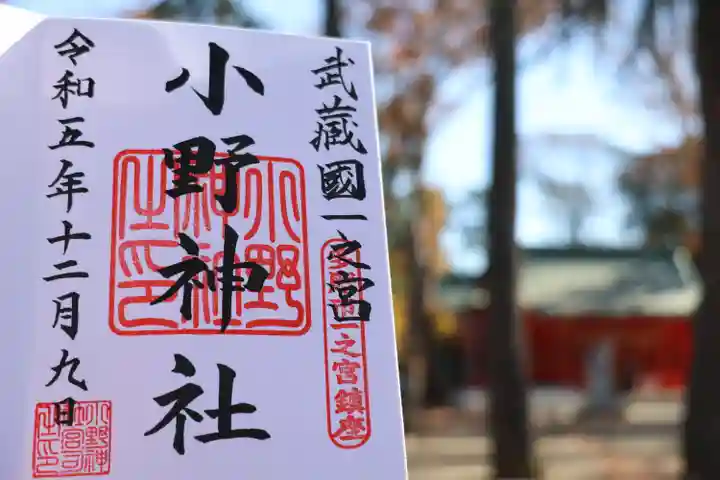 武藏國一之宮
一之宮鎮座
小野神社
小野神社之印
令和五年十二月九日
小野神